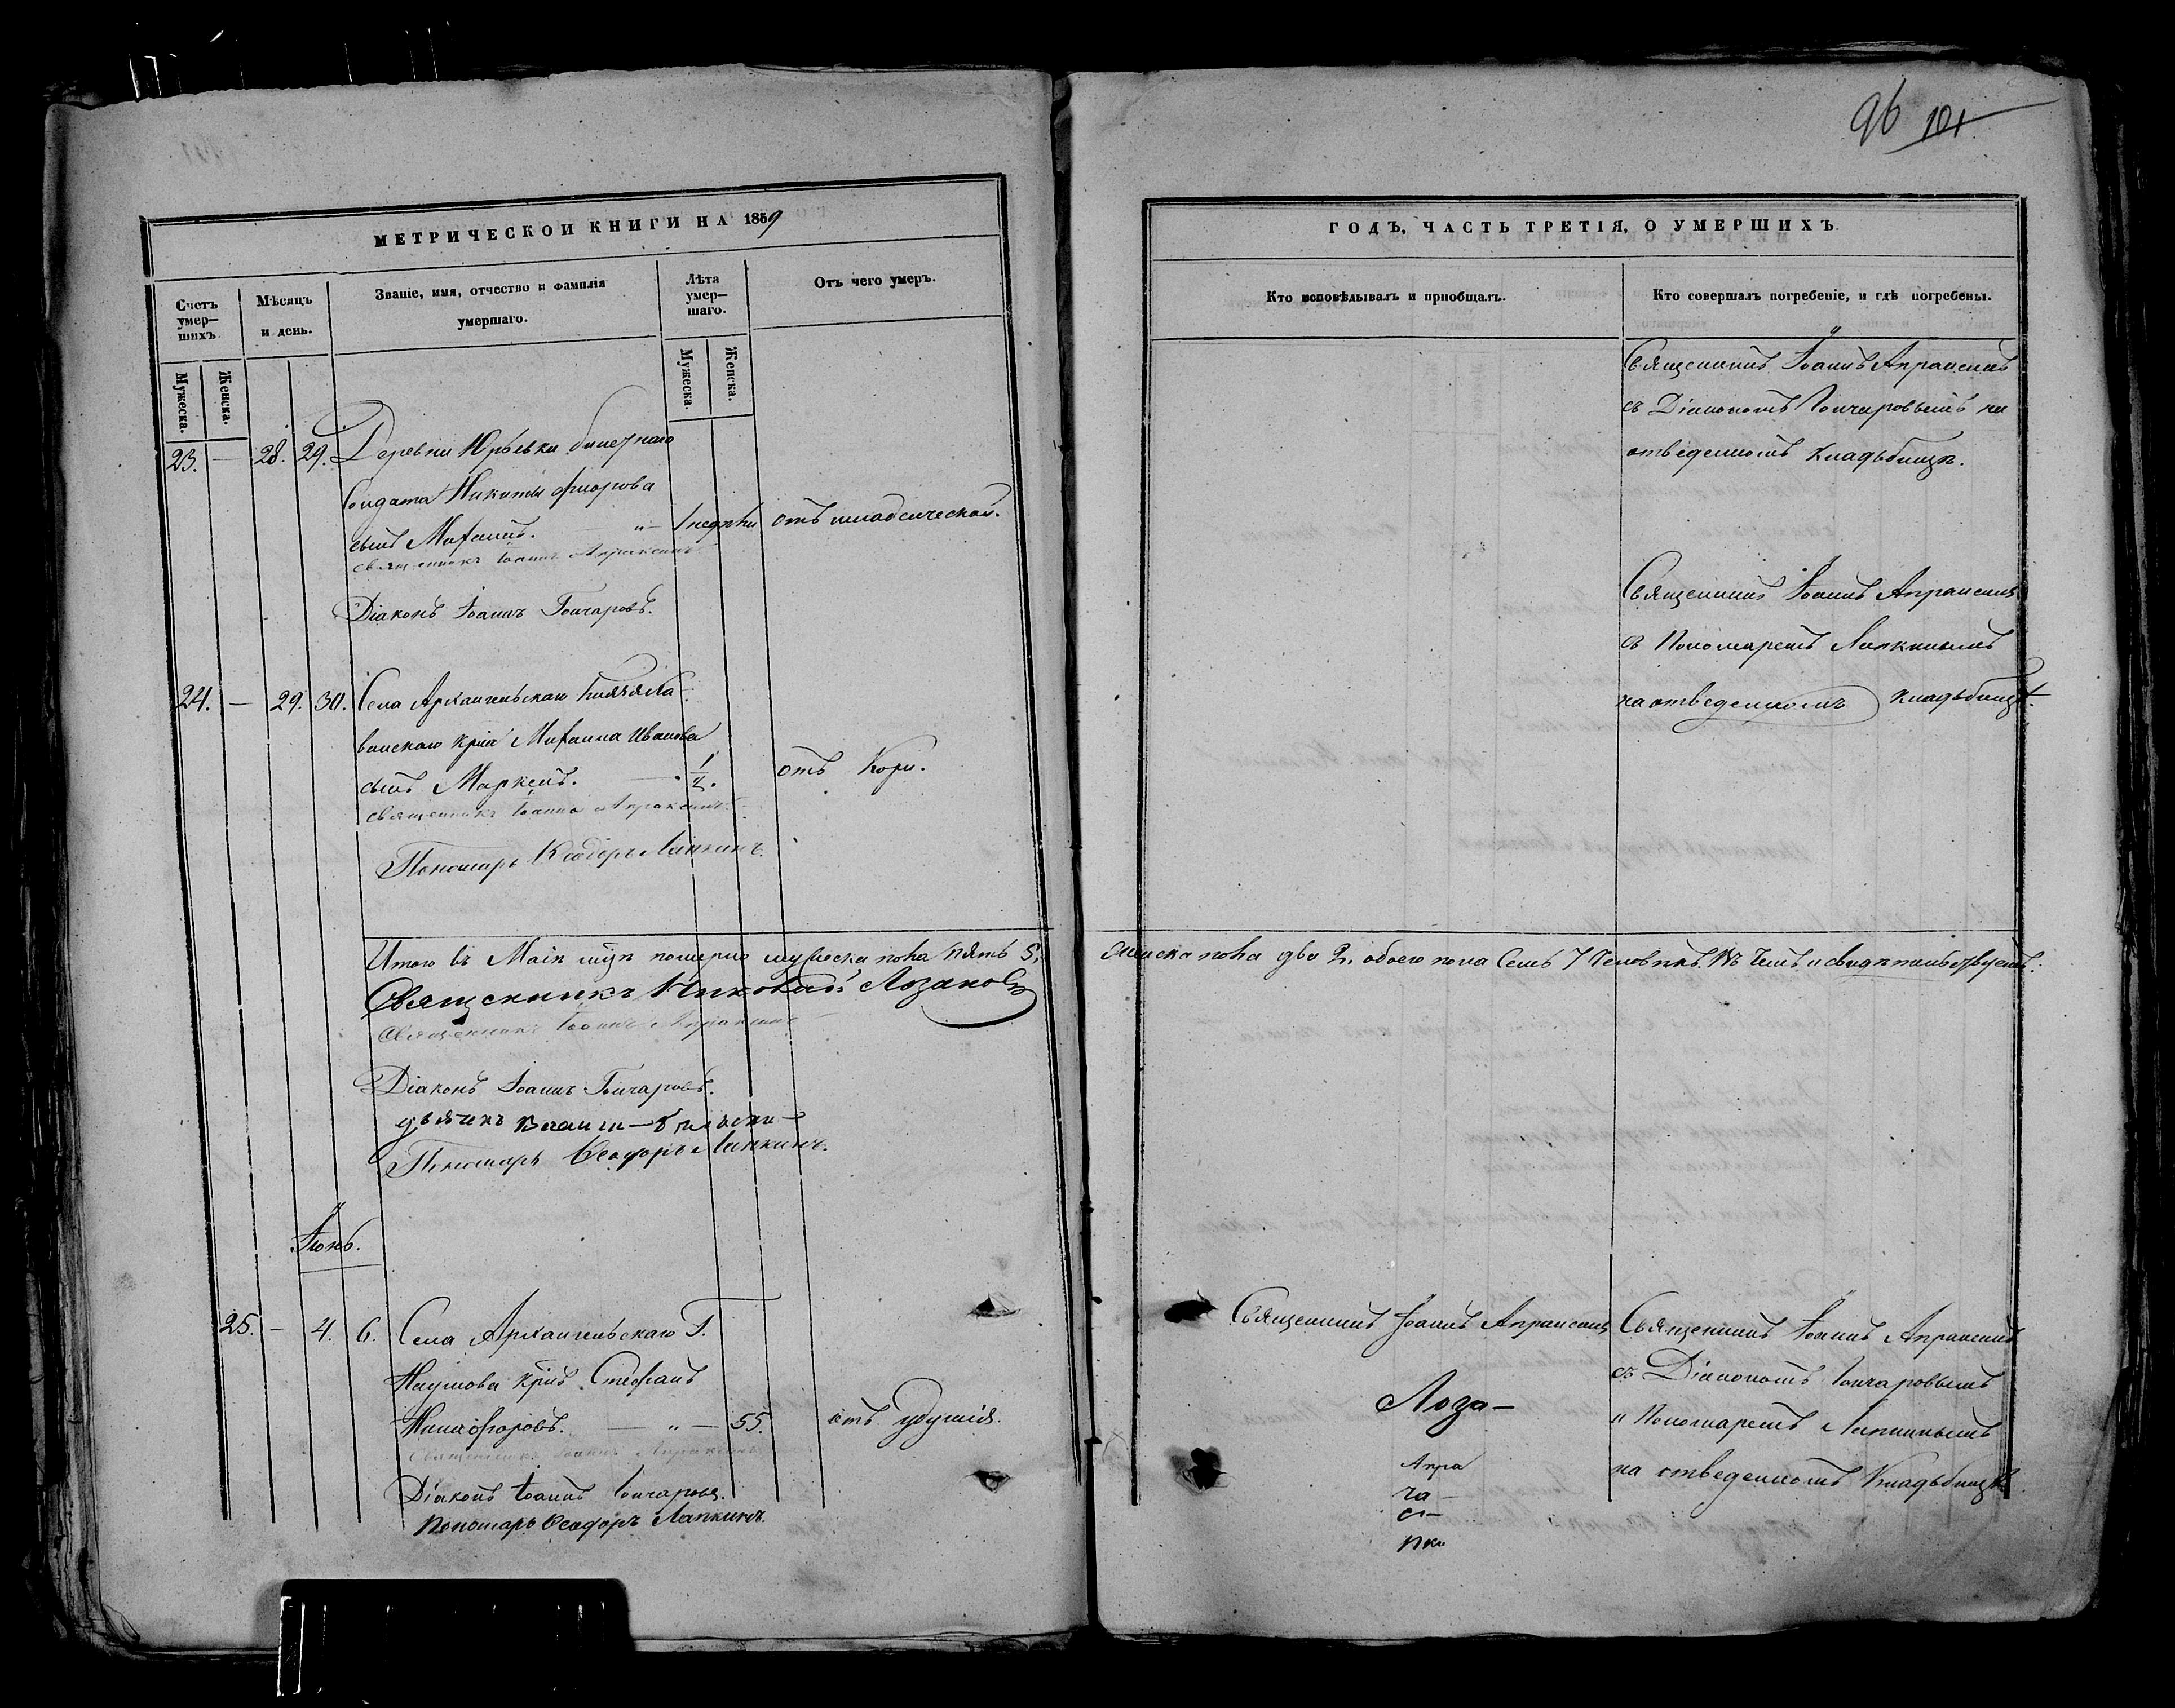 96 101
МЕТРИЧЕСКОЙ КНИГИ НА 1859
Счетъ умер—шихъ.
Мѣсяцъ и день.
Званіе, имя, отчество и фамилія умершаго.
Лѣта умер—шаго.
Отъ чего умеръ.
Мужеска.
Женска.
Мужеска.
Женска.
23. — 28. 29. Деревни Юрьевки билетнаго
Солдата Никиты
сынъ Михаилъ. —"— 1 недѣли отъ младенческой.
Священникъ Іоаннъ Апраксинъ
Діаконъ Іоаннъ Гончаровъ.
24. — 29. 30. Села Архангельскаго
Михаила Иванова
сынъ Маркелъ. — 1/2. отъ Кори.
Священникъ Іоаннъ Апраксинъ
Пономарь Ѳеодоръ Лапкинъ.
Итого въ Маіи м͠цѣ померло мужеска пола пять 5,
Священникъ Николай Лозановъ
Священникъ Іоаннъ Апраксинъ
Діаконъ Іоаннъ Гончаровъ.
дьячекъ
Пономарь Ѳеодоръ Лапкинъ.
Іюнь.
25. — 4. 6. Села Архангельскаго Г.
Наумова кр͠нъ Стефанъ
Никифоровъ. —"— 55. отъ удушія.
Священникъ Іоаннъ Апраксинъ
Діаконъ Іоаннъ Гончаровъ.
Пономарь Ѳеодоръ Лапкинъ.
ГОДЪ, ЧАСТЬ ТРЕТІЯ, О УМЕРШИХЪ.
Кто исповѣдывалъ и пріобщалъ.
Кто совершалъ погребеніе, и гдѣ погребены.
Священникъ Іоаннъ Апраксинъ
съ Діакономъ Гончаровымъ на
отведенномъ кладьбищѣ.
Священникъ Іоаннъ Апраксинъ
съ Пономаремъ Лапкинымъ
на отведенномъ кладьбищѣ.
женска пола два 2, обоего пола Семь 7 Человѣкъ. Въ Чемъ и свидѣтельствуемъ:
Священникъ Іоаннъ Апраксинъ
Лоза—
Апра
ча—
ст—
пки
Священникъ Іоаннъ Апраксинъ
съ Діакономъ Гончаровымъ
и Пономаремъ Лапкинымъ
на отведенномъ Кладьбищѣ